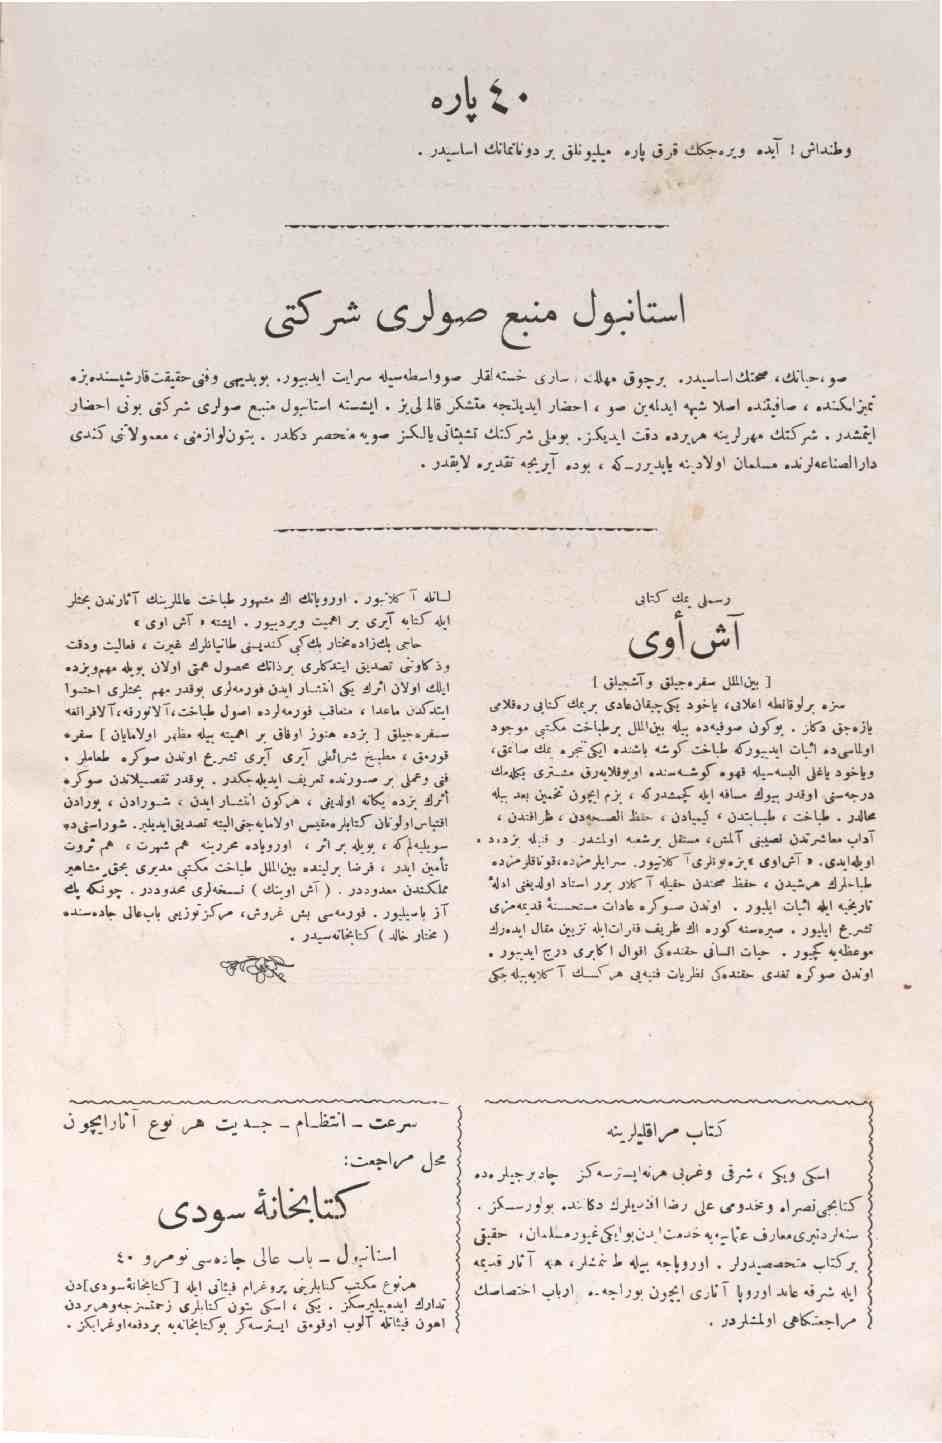 ٤٠ پاره
وطنداش ! آيده ويره‌جكك قرق پاره ميليونلق بر دونانمانك اساسيدر .
استانبول منبع صولرى شركتى
صو ، حياتك ، صحتك اساسيدر. برچوق مهلك ، سارى خسته‌لقلر صو واسطه‌سيله سرايت ايدييور. بو بديهى و فنى حقيقت قارشيسنده بزه
تميزلكنده ، صافيتنده اصلا شبهه ايدلمه‌ين صو ، احضار ايديلنجه متشكر قالمالى‌يز . ايشته استانبول منبع صولرى شركتى بونى احضار
ايتمشدر . شركتك مهرلرينه هر يرده دقت ايديكز. بو ملى شركتك تشبثاتى يالكز صويه منحصر دكلدر . بتون لوازمنى ، معمولاتنى كندى
دارالصناعه‌لرنده مسلمان اولادينه ياپديرر‌ـكه ، بوده آيريجه تقديره لايقدر .
رسملى يمك كتابى
آش أوى
[ بين‌الملل سفره‌جيلق و آشجيلق ]
سزه بر لوقانطه اعلانى، ياخود يكى چيقان عادى بر يمك كتابى ره‌قلامى
يازه‌جق دكلز . بوكون صوفيه‌ده بيله بين‌الملل بر طباخت مكتبى موجود
اولماسى‌ده اثبات ايدييوركه طباخت كوشه باشنده ايكى تنجره يمك صاتمق،
وياخود ياغلى البسه‌سيله قهوه كوشه‌سنده اويوقلايه‌رق مشترى بكله‌مك
درجه‌سنى اوقدر بيوك مسافه ايله كچمشدركه ، بزم ايچون تخمين بعد بيله
محالدر. طباخت ، طبابتدن ، كيميادن ، حفظ الصحه‌دن ، ظرافتدن ،
آداب معاشرتدن نصيبنى آلمش، مستقل بر شعبه اولمشدر. و قبله بزده‌ده
اويله‌ايدى. « آش اوى » بزه بونلرى آكلاتيور. سرايلرمزده، قوناقلرمزده
طباخلرك هر شيدن ، حفظ صحتدن حقيله آكلار برر استاد اولديغى ادلهٔ
تاريخيه ايله اثبات ايليور . اوندن صوكره عادات مستحسنهٔ قديمه‌مزى
تشريح ايليور . صيره‌سنه كوره اك ظريف فقرات ايله تزيين مقال ايده‌رك
موعظه‌يه كچيور . حيات انسانى حقنده‌كى اقوال اكابرى درج ايدييور .
اوندن صوكره تغدى حقنده‌كى نظريات فنيه‌يى هركسك آكلايه‌بيله‌جكى
لسانله آكلاتيور . اوروپانك اك مشهور طباخت عالملرينك آثارندن بحثلر
ايله كتابه آيرى بر اهميت ويردييور . ايشته « آش اوى »
حاجى بك‌زاده مختار بك كبى كنديسنى طانيانلرك غيرت ، فعاليت ودقت
وذكاوتنى تصديق ايتدكلرى بر ذاتك محصول همتى اولان بويله مهم وبزده
ايلك اولان اثرك يكى انتشار ايدن فورمه‌لرى بوقدر مهم بحثلرى احتوا
ايتدكدن ماعدا ، متعاقب فورمه‌لرده اصول طباخت، آلاتورقه، آلافرانغه
سفره‌جيلق [ بزده هنوز اوفاق بر اهميته بيله مظهر اولامايان ] سفره
قورمق ، مطبخ شرائطى آيرى آيرى تشريح اوندن صوكره طعاملر .
فنى وعملى بر صورتده تعريف ايديله‌جكدر . بوقدر تفصيلاتدن صوكره
اثرك بزده يكانه اولديغى ، هركون انتشار ايدن ، شورادن ، بورادن
اقتباس اولونان كتابلره مقيس اولامايه‌جغى البته تصديق ايديلير. شوراسنى‌ده
سويليه‌لم‌كه ، بويله بر اثر ، اوروپاده محررينه هم شهرت ، هم ثروت
تأمين ايدر ، فرضا برلينده بين‌الملل طباخت مكتبى مديرى بحق مشاهير
مملكتدن معدوددر . ( آش اوينك ) نسخه‌لرى محدوددر . چونكه پك
آز باصيليور . فورمه‌سى بش غروش، مركز توزيعى باب‌عالى جاده‌سنده
( مختار خالد ) كتابخانه‌سيدر .
كتاب مراقليلرينه
اسكى ويكى ، شرقى وغربى هر نه ايسترسه‌كز چادرجيلرده
كتابجى نصراه ومخدومى على رضا افنديلرك دكاننده بولورسكز .
سنه‌لردنبرى معارف عثمانيه‌يه خدمت ايدن بو ايكى غيور مسلمان، حقيقى
بر كتاب متخصصيدرلر . اوروپاجه بيله طانينمشلر، هپه آثار قديمه
ايله شرقه عائد اوروپا آثارى ايچون بوراجه‌ده ارباب اختصاصك
مراجعتكاهى اولمشلردر .
سرعت ـ انتظام ـ جديت هر نوع آثار ايچون
محل مراجعت:
كتابخانهٔ سودى
استانبول ـ باب عالى جاده‌سى نومرو ٤٠
هرنوع مكتب كتابلرينى پروغرام فيئاتى ايله [ كتابخانهٔ سودى ]دن
تدارك ايده‌بيليرسكز. يكى ، اسكى بتون كتابلرى زحمتسزجه وهر يردن
اهون فيئاتله آلوب اوقومق ايسترسه‌كز بو كتابخانه‌يه بر دفعه اوغرايكز .